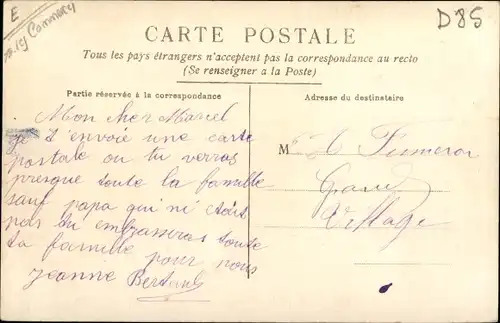 E
Commercy
D85
CARTE POSTALE
Tous les pays étrangers n'acceptent pas la correspondance au recto
(Se renseigner a la Poste)
Partie réservée à la correspondance
Adresse du destinataire
Mon cher Marcel
je t'envoie une carte
postale ou tu verras
presque toute la famille
sauf papa qui ni était
pas tu embrasseras toute
ta famille pour nous
Jeanne
M
Grand
Village